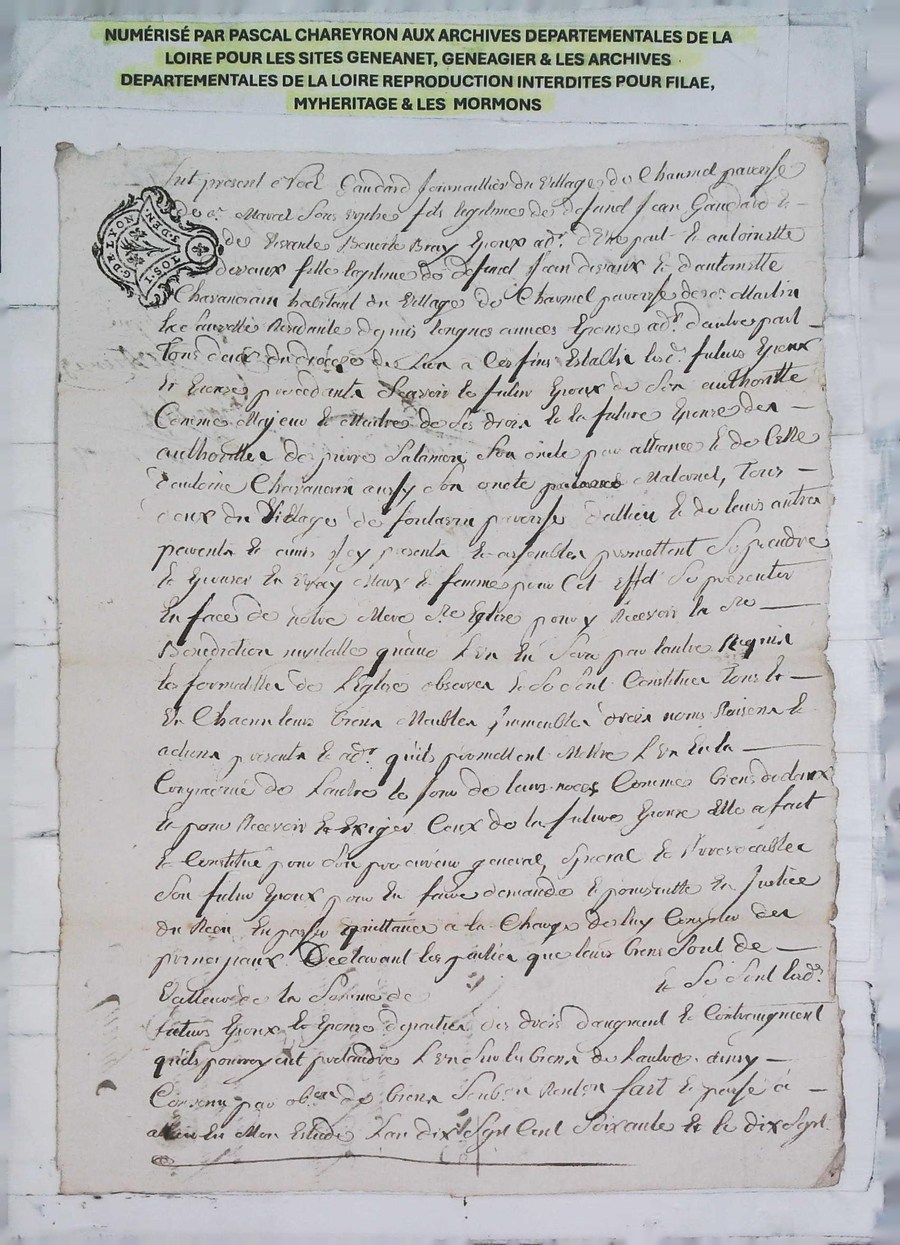 NUMÉRISÉ PAR PASCAL CHAREYRON AUX ARCHIVES DEPARTEMENTALES DE LA
LOIRE POUR LES SITES GENEANET, GENEAGIER & LES ARCHIVES
DEPARTEMENTALES DE LA LOIRE REPRODUCTION INTERDITES POUR FILAE,
MYHERITAGE & LES MORMONS
present Noel Gaudard Journaillier du Village de paroisse
de St Marcel fils legitime de defunt Jean Gaudard
G. DE LYON
I. SOL
S. DEN.
de vivante Benoite Epoux adv. d'une part et antoinette
devaux fille legitime de defunt Jean devaux et d'antoinette
Chavanerin habitant du Village de paroisse de St Martin
depuis longues années Epouse adv. d'autre part
Tous deux du diocèse de a ces fins Establis les d. futurs Epoux
et Epouse procedants Scavoir le futur Epoux de Son authoritte
Comme Majeur et Maitre de Ses droits et la future Epouse de
authorittee de pierre Salamon Son oncle par alliance et de Celle
d'antoine Chavanerin aussy Son oncle Maternel, Tous
deux du Village de paroisse d'allieu et de leurs autres
parents et amis Jcy presents et assembles promettent Se prendre
et Epouser En Vray Mary et femme pour Cet Effet Se presenter
En face de notre Mere Ste Eglise pour y Recevoir la
Benediction nuptialle quand L'un En Sera par l'autre Requis
les formalites de L'Eglise observees Constitues Tous
Et Chacun leurs biens Meubles Jmmeubles droits noms Raisons et
actions presents et adv. qu'ils promettent Mettre L'un En la
Compagnie de L'autre le jour de leurs noces Comme biens dotaux
Et pour Recevoir et Exiger Ceux de la future Epouse Elle a fait
et Constitué pour Son procureur general, Special et Jrrevocable
Son futur Epoux pour En faire demande et poursuitte En Justice
du Recu En passer quittance a la Charge de luy Compter des
principaux. Declarant les parties que leurs biens Sont de
Valleur de la Somme de et Se Sont lesd.
futurs Epoux et Epouse departies des droits d'augment et Contraugment
qu'ils pourroyent pretendre L'un Sur les biens de L'autre ainsy
Convenu par ob.on de biens fait et passé à
En Mon Estude L'an dix Sept Cent Soixante et le dix Sept.